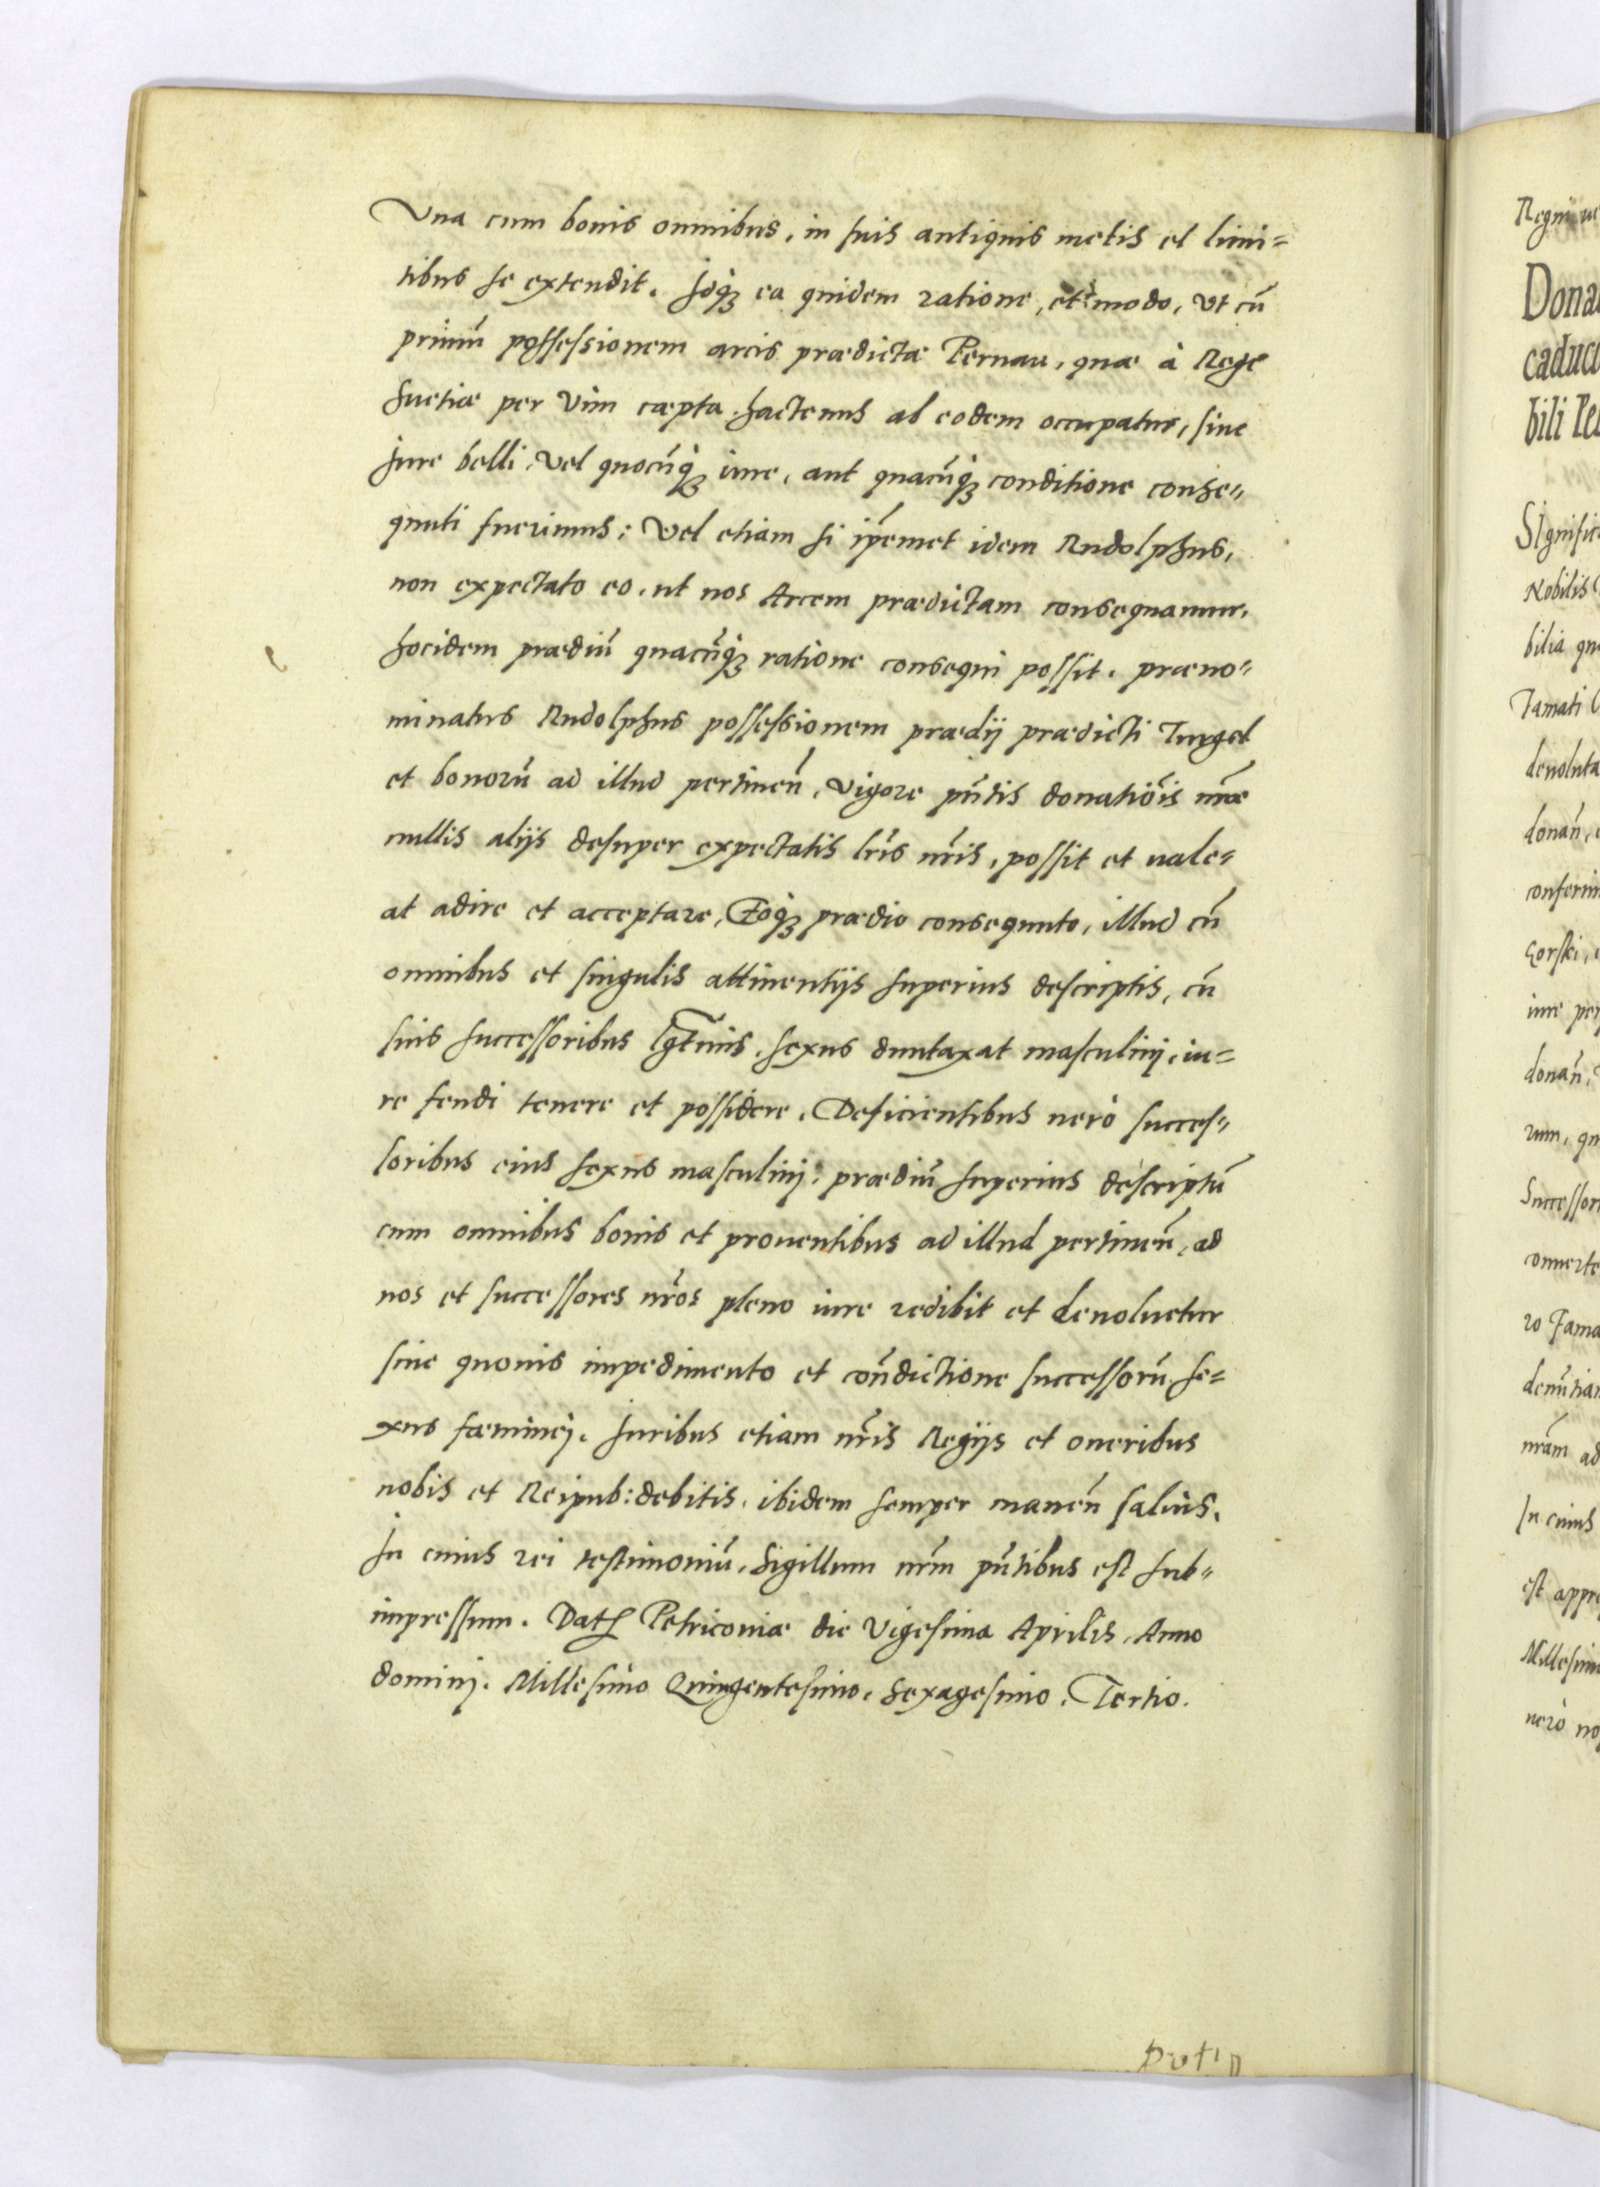 Vna cum bonis omnibus, in suis antiquis metis et limi=
tibus se extendit. Idq3 ea quidem ratione, et modo, vt cũ
primũ possessionem arcis prædictæ Pernau, quæ à Rege
Suetiæ per vim cæpta hactenus ab eodem occupatur, siue
Jure belli, vel quocũq3 iure, aut quacũq3 conditione conse=
quuti fuerimus: Vel etiam si ip̃emet idem Rudolphus,
non expectato eo, ut nos Arcem prædictam consequamur,
hocidem prædiũ quacũq3 ratione consequi possit, præno=
minatus Rudolphus possessionem prædij prædicti Turgel
et bonorũ ad illud pertineñ, vigore pñtis donatiõis nr̃æ
nullis alijs desuper expectatis lr̃is nr̃is, possit et uale=
at adire et acceptare, Eoq3 prædio consequuto, illud cũ
omnibus et singulis attinentijs superius descriptis, cũ
suis successoribus lg̃tmis, sexus duntaxat masculini, iu=
re feudi tenere et possidere. Deficientibus uerò succes=
soribus eius sexus masculini, prædiũ superius descriptũ
cum omnibus bonis et prouentibus ad illud pertineñ, ad
nos et successores nr̃os pleno iure redibit et deuoluetur
sine quouis impedimento et coñdictione successorũ se=
xus fæminei. Juribus etiam nr̃is Regijs et oneribus
nobis et Reipub: debitis, ibidem semper maneñ saluis.
In cuius rei testimoniũ, Sigillum nr̃m pñtibus est sub=
impressum. Dat Petricouiæ die Vigesima Aprilis, Anno
domini. Millesimo Quingentesimo, Sexagesimo, Tertio.
Dona
caduc
bili
Signific
Nobilis
bilia
Tamati
deuoluta
donañ,
Gorski,
iure per
donañ,
rum,
Successor
conuerte
nr̃am ad
In cuius
est appre
Millesim
uerò no